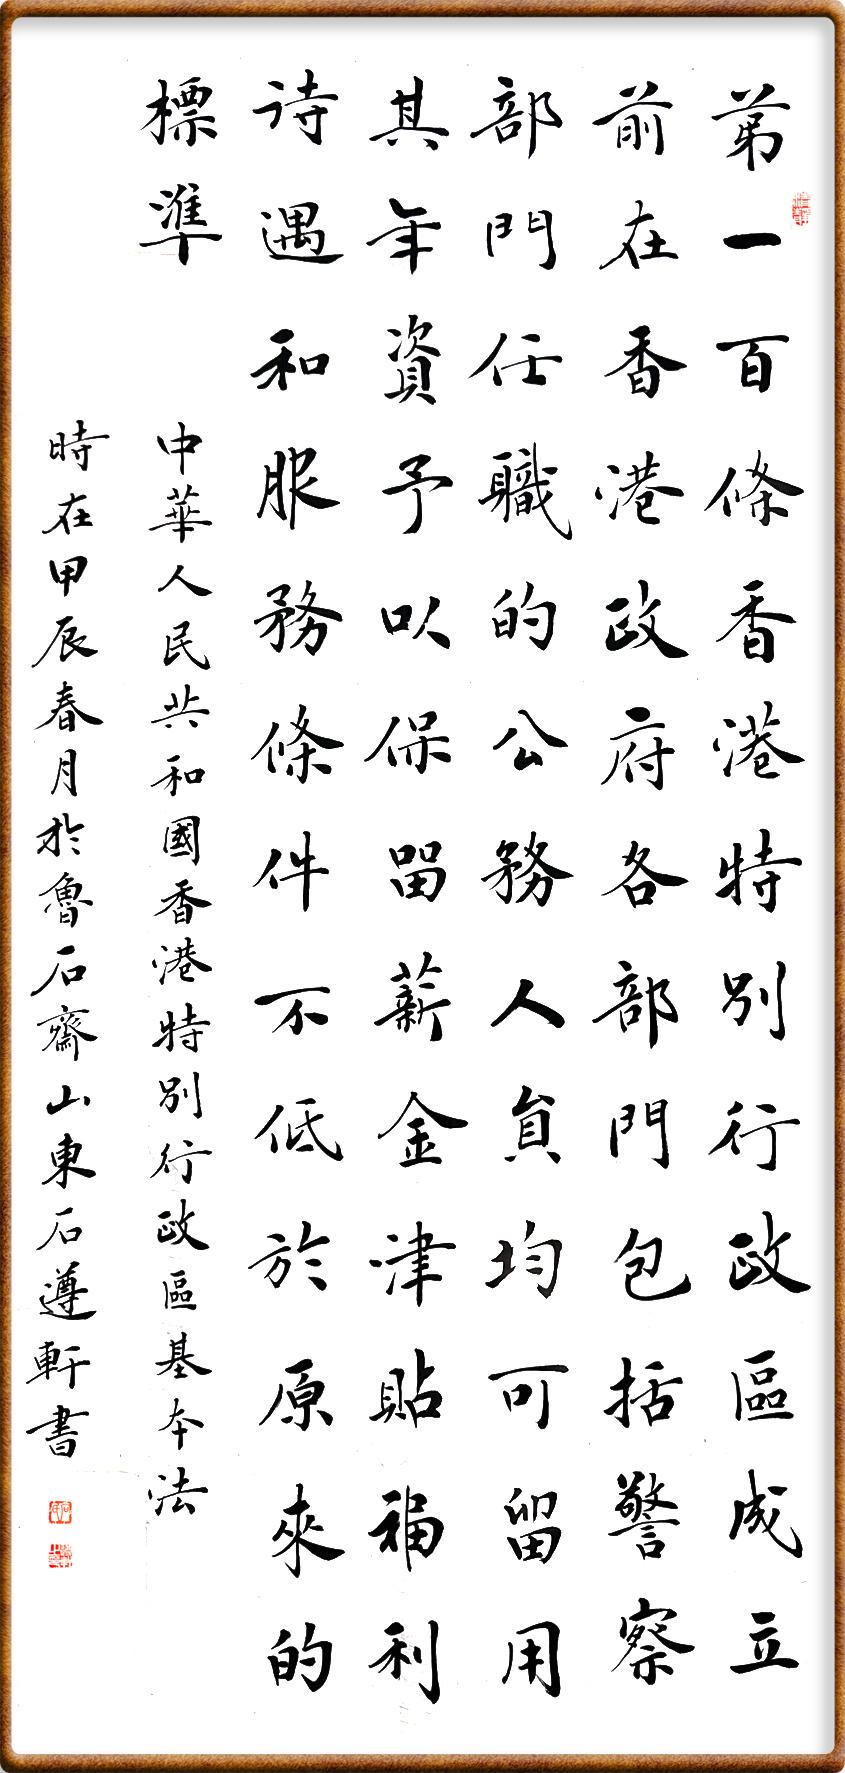 第一百條香港特別行政區成立
前在香港政府各部門包括警察
部門任職的公務人員均可留用
其年資予以保留薪金津貼福利
待遇和服務條件不低於原來的
標準
中華人民共和國香港特別行政區基本法
時在甲辰春月於魯石齋山東石遵軒書